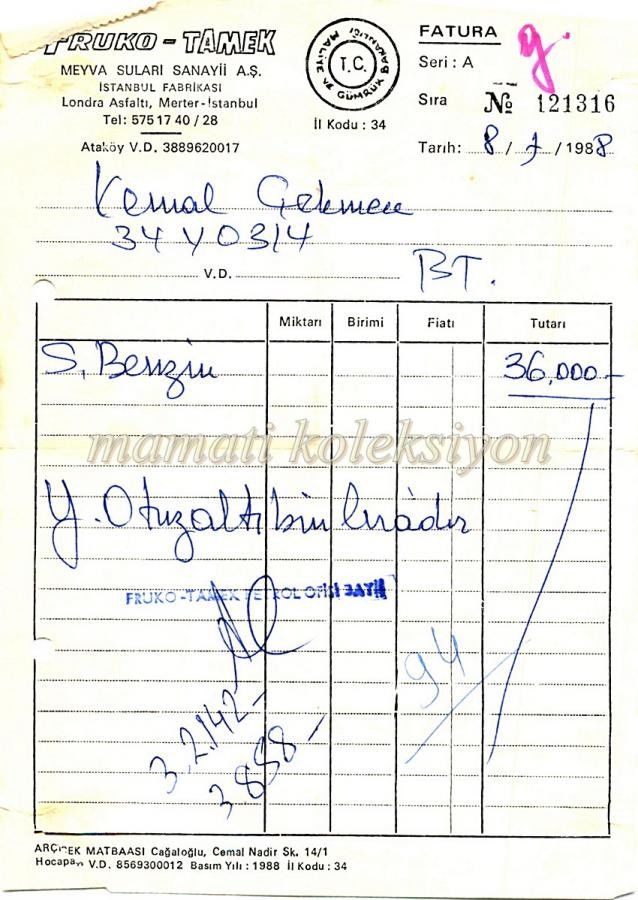 FRUKO - TAMEK
MEYVA SULARI SANAYİİ A.Ş.
İSTANBUL FABRİKASI
Londra Asfaltı, Merter-İstanbul
Tel: 575 17 40 / 28
Ataköy V.D. 3889620017
MALİYE VE GÜMRÜK BAKANLIĞI
T.C.
İl Kodu : 34
FATURA
Seri : A
Sıra № 121316
Tarih: 8 / 7 / 1988
Kemal Gekmen
34 Y 0314
V.D. BT.
Miktarı Birimi Fiatı Tutarı
S. Benzin 36,000-
mamati koleksiyon
Y. Otuzaltı bin liradır
FRUKO-TAMEK PETROL OFİSİ BAYİİ
94
3.2.142-
3858-
ARÇİÇEK MATBAASI Cağaloğlu, Cemal Nadir Sk. 14/1
Hocapaşa V.D. 8569300012 Basım Yılı : 1988 İl Kodu : 34